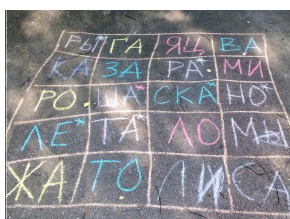 РЫ* ГА ЯЦ ВА
КА ЗА РА. МИ
РО. ША* СКА* НО*
ЛЕ* ТА* ЛО МЫ
ЖА ТО ЛИ СА